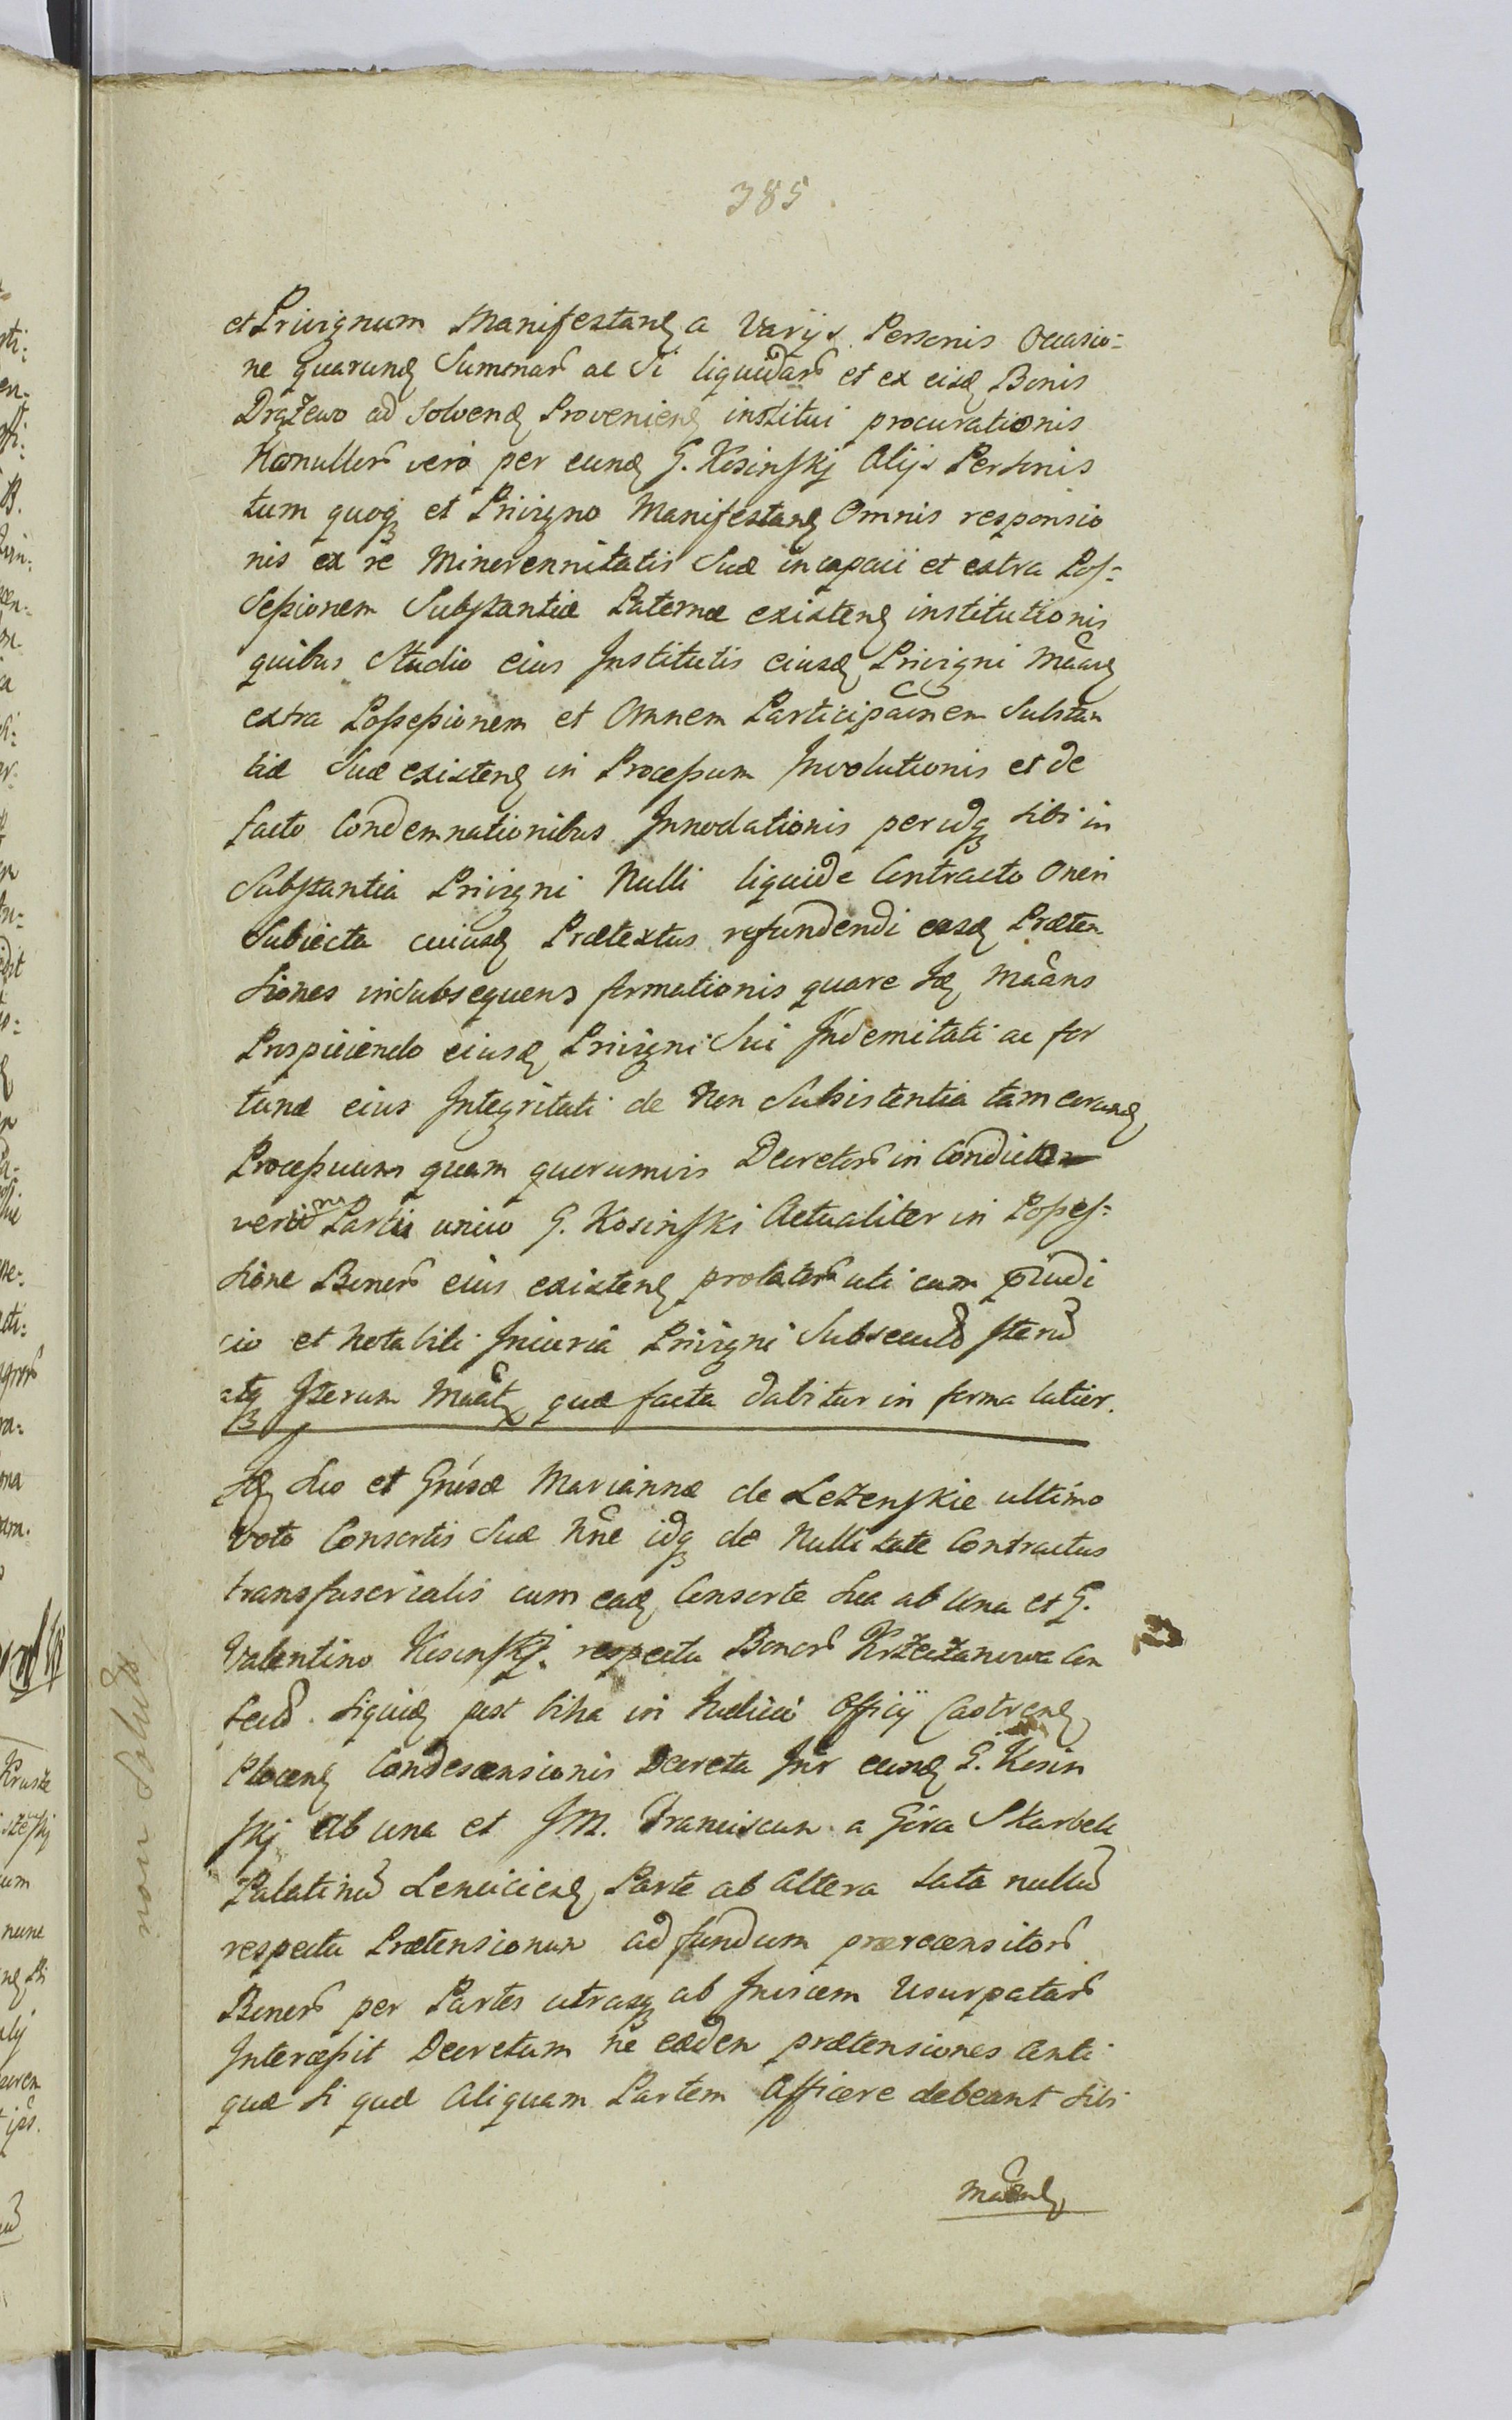 385
et Privignum Manifestanẹ a Varijs Personis Occasio=
ne quarunḍ Summar̃ ac si liquidar̃ et ex eisḍ Bonis
Drążewo ad solvenḍ Provenienẹ institui procurationis
Nonullor̃ vero per eunḍ G. Kosinskj Alijs Personis
tum quoq et Privigno Manifestanẹ Omnis responsio
nis ex re Minorennitatis Suæ incapaci et extra Pos=
sessionem Substantiæ Paternæ existenẹ institutionis
quibus Studio eius Institutis eiusḍ Privigni Mãnẹ
extra Possessionem et Omnem Participãõnem Substan
tiæ Suæ existenẹ in Processum Involutionis et de
facto Condemnationibus Innodationis per idq sibi in
Substantia Privigni Nulli liquide Contracto Oneri
Subiecta cuiusḍ Prætextus refundendi easḍ Præten
siones in subsequens formationis quare Iḍ Mãans
Prospiciendo eiusḍ Privigni Sui Indemitati ac for
tunæ eius Integritati de Non Subsistentia tam eorunḍ
Processuum quam quorumvis Decretor̃ in Condict
Partis unico G. Kosinski Actualiter in Posses=
sione Bonor̃ eius existenẹ prolator̃ uti cum p̃iudi
cio et Notabili Iniuria Privigni Subsecutor̃ Iterũ
atq Iterum Mãat quæ facta dabitur in forma latior.
Iḍ Suo et Gñsæ Mariannæ de Lezenskie ultimo
Voto Consortis Suæ Nñe idq de Nullitate Contractus
transfusorialis cum eaḍ Consorte Sua ab Una et G.
Valentino Kosinskj respectu Bonor̃ Krzeczanowa Con
fecti. Siquiḍ post bina in Iudicio Officij Castrenẹ
Plocenẹ Condescensionis Decreta Inr eunḍ G. Kosin
skj Ab una et J M. Franciscum a Góra Skarbek
Palatinũ Lenciciensẹ Parte ab Altera lata nullũ
respectu Prætensionum ad fundum prærecensitor̃
Bonor̃ per Partes utrasq ab Invicem Usurpatar̃
Intercessit Decretum ne eædem prætensiones Anti
quæ si quæ Aliquam Partem Afficere debeant sibi
Mãanẹ
non solut